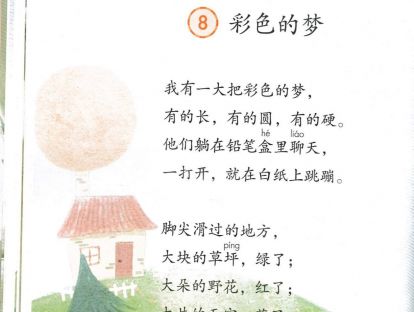 8 彩色的梦
我有一大把彩色的梦，
有的长，有的圆，有的硬。
hé liáo
他们躺在铅笔盒里聊天，
一打开，就在白纸上跳蹦。
脚尖滑过的地方，
píng
大块的草坪，绿了；
大朵的野花，红了；